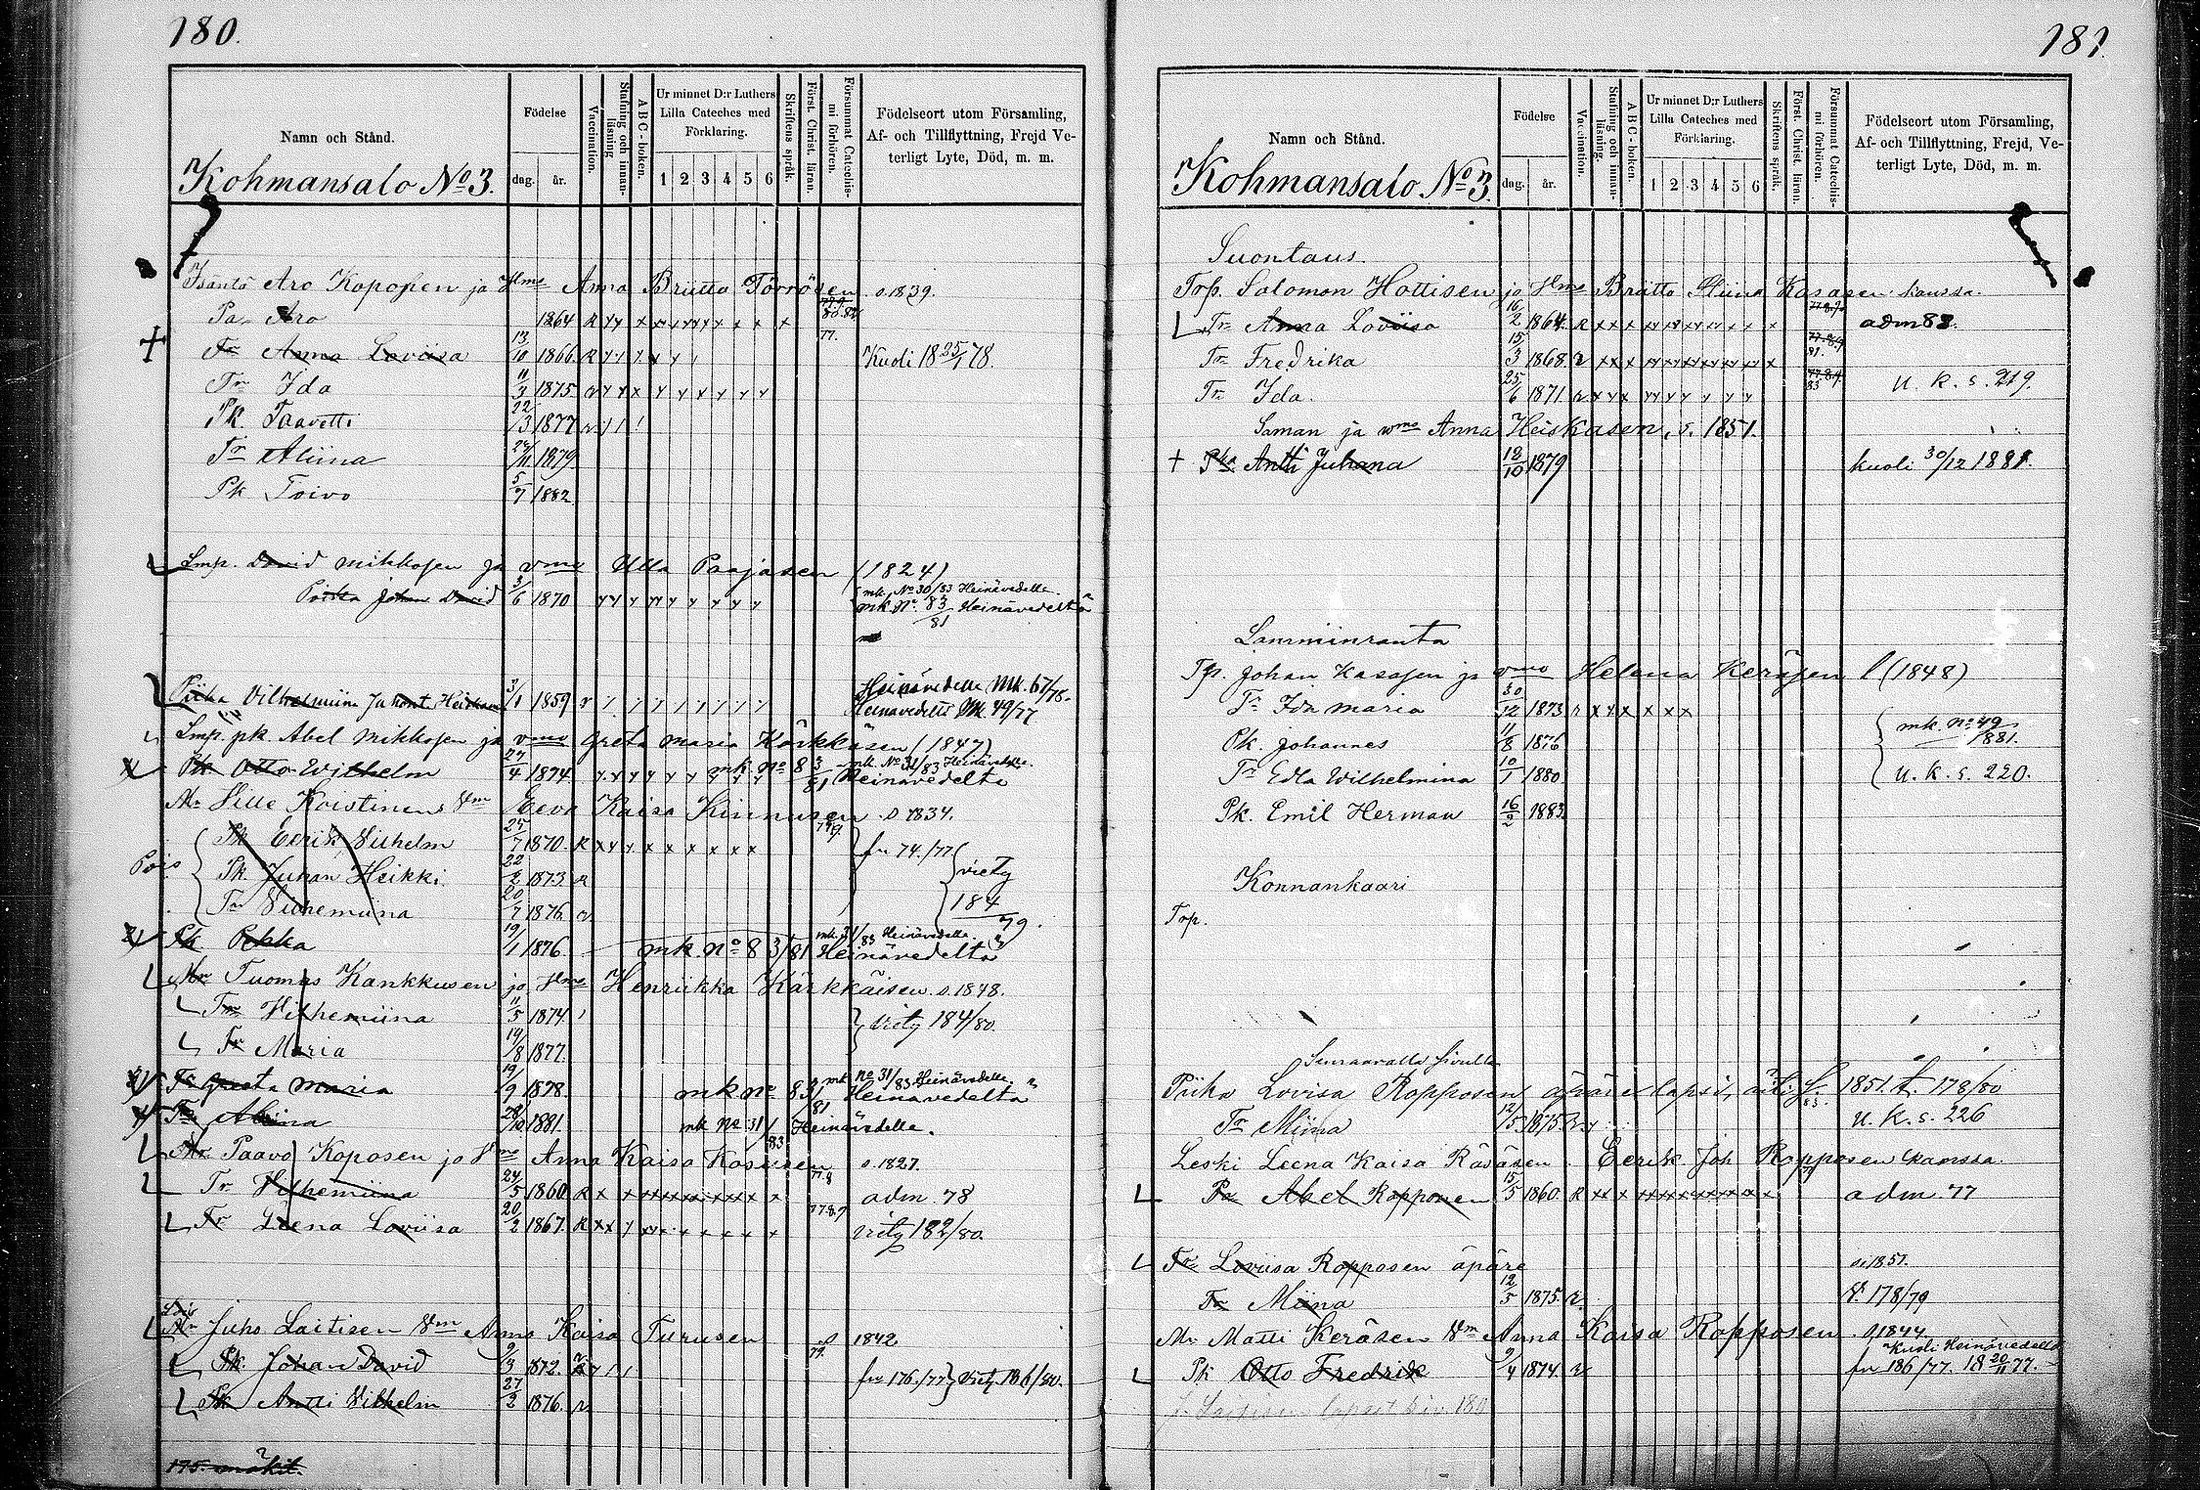 180.
Namn och Stånd.
Kohmansalo No 3.
Födelse
dag.
år.
Vaccination.
Stafning och innan-läsning
ABC-boken.
Ur minnet D:r Luthers
Lilla Cateches med
Förklaring.
1 2 3 4 5 6
Skriftens språk.
Först. Christ. läran.
Försummat Catechis-
mi förhören.
Födelseort utom Församling,
Af- och Tillflyttning, Frejd Ve-
terligt Lyte, Död, m. m.
Isäntä Aro Koposen ja Vmo Anna Briitta Törrösen s. 1839.
Pa Aro 1864 R
Tr Anna Loviisa 13/10 1866. R Kuoli 18 25/1 78.
Tr Ida 11/3 1875
Pk. Taavetti 22/3 1877
Tr Aliina 24/11 1879
Pk Toivo 5/7 1882
Lmp. David Mikkosen ja vmo Ulla Paajasen (1824)
Poika Johan David 3/6 1870 mk. No 30/83 Heinävedelle.
mk No. 83/81 Heinävedeltä
Piika Vilhelmiina Juhont. Heiskanen 3/1 1859 Heinävedelle Mk. 67/78.
Heinävedeltä Mk 49/77
Lmp. pk. Abel Mikkosen ja vmo Greta Maria Kärkkäsen (1847)
Pk Otto Wilhelm 27/4 1874 mk No 83/81 Heinävedeltä
mk No 31/83 Heinävedelle
Mr Ville Koistinen Vm Eeva Kaisa Kinnusen s 1834.
Pois
Pk Eerik Vilhelm 27/7 1870. R fr 74./77
Pk Juhan Heikki 22/2 1873 R viety
Tr Vilhemiina 20/7 1876 184/79.
Pk Pekka 19/1 1876. mk No 83/81 Heinävedeltä
mk. 31/83 Heinävedelle
Mr Tuomas Kankkusen ja Vmo Henriikka Kärkkäisen s. 1848.
Tr Vilhemiina 11/5 1874 viety 184/80.
Tr Maria 19/8 1877.
Tr Greta Maria 19/9 1878. mk No 83/81 Heinävedeltä
mk No 31/83 Heinävedelle
Tr Aliina 28/10 1881. mk No 31/83 Heinävedelle.
Mr Paavo Koposen ja Vmo Anna Kaisa Kososen s. 1827.
Tr. Vilhemiina 24/5 1860 R adm. 78
Tr Leena Loviisa 20/2 1867. R viety 182/80.
Mr Juho Laitisen Vm Anna Kaisa Turusen s 1842
Pk. Johan David 9/3 1872. fr 176./77 viety 186/80.
Pk Antti Vilhelm 27/2 1876.
175. mökit.
181.
Namn och Stånd.
Kohmansalo No 3.
Födelse
dag.
år.
Vaccination.
Stafning och innan-läsning.
ABC-boken.
Ur minnet D:r Luthers
Lilla Cateches med
Förklaring.
1 2 3 4 5 6
Skriftens språk.
Först. Christ. läran.
Försummat Catechis-
mi förhören.
Födelseort utom Församling,
Af- och Tillflyttning, Frejd, Ve-
terligt Lyte, Död, m. m.
Suontaus.
Torp. Salomon Hottisen ja Vmo Briitta Stiina Kasasen kanssa.
Tr Anna Loviisa 16/2 1864. R adm 82.
Tr Fredrika 15/3 1868.
Tr Ida. 25/6 1871 U. K. s. 219.
Saman ja vmo Anna Heiskasen, s. 1851.
Pka. Antti Juhana 18/10 1879 kuoli 30/12 1881.
Lamminranta
Tp. Johan Kasasen ja vmo Helena Keräsen l (1848)
Tr Ida Maria 30/12 1873
Pk. Johannes 11/8 1876 mk. No 49/1881.
Tr Edla Wilhelmina 10/1 1880 U. K. s. 220.
Pk. Emil Herman 16/2 1883
Konnankaari
Torp.
Seuraavalla sivulla
Piika Lovisa Ropposen äpärelapsi, äiti s. 1851. f. 178/80
Tr Miina 12/5 1875 U. K. s. 226
Leski Leena Kaisa Räsäsen Eerik Joh Ropposen kanssa.
Pa Abel Ropponen 15/5 1860. R adm 77
Tr Loviisa Ropposen äpäre s. 1851.
Tr Miina 12/5 1875. V. 178/79
Mr Matti Keräsen Vm Anna Kaisa Ropposen s 1844
Pk Otto Fredrik 9/4 1874. fr 186/77. Kuoli Heinävedellä 18 20/11 77.